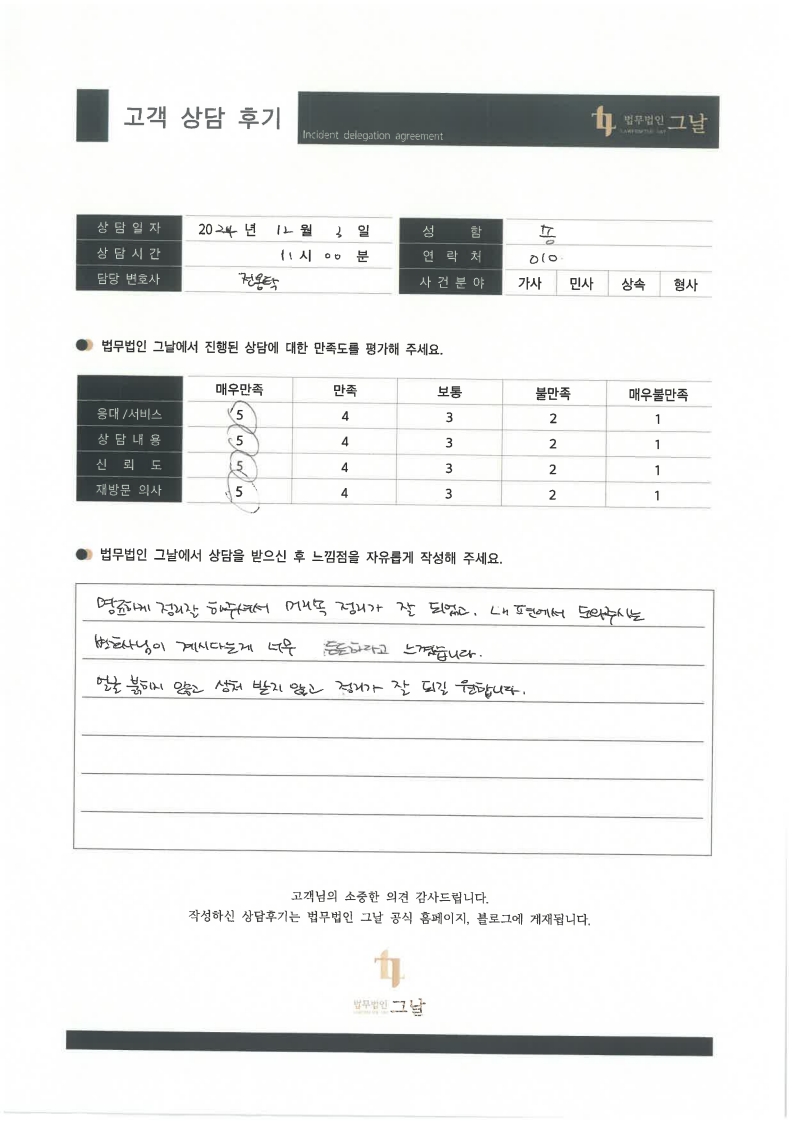 고객 상담 후기
Incident delegation agreement
법무법인 그날
상담일자 2024년 12월 3일 성 함 홍
상담시간 11시 00분 연 락 처 010.
담당 변호사 전용탁 사건분야 가사 민사 상속 형사
법무법인 그날에서 진행된 상담에 대한 만족도를 평가해 주세요.
매우만족 만족 보통 불만족 매우불만족
응대/서비스 5 4 3 2 1
상담내용 5 4 3 2 1
신 뢰 도 5 4 3 2 1
재방문 의사 5 4 3 2 1
법무법인 그날에서 상담을 받으신 후 느낌점을 자유롭게 작성해 주세요.
명료하게 정리잘 해주셔서 머리속 정리가 잘 되었고, 내 편에서 도와주시는
변호사님이 계시다는게 너무 든든하라고 느꼈습니다.
얼굴 붉히지 않고 상처 받지 않고 정리가 잘 되길 원합니다.
고객님의 소중한 의견 감사드립니다.
작성하신 상담후기는 법무법인 그날 공식 홈페이지, 블로그에 게재됩니다.
법무법인 그날